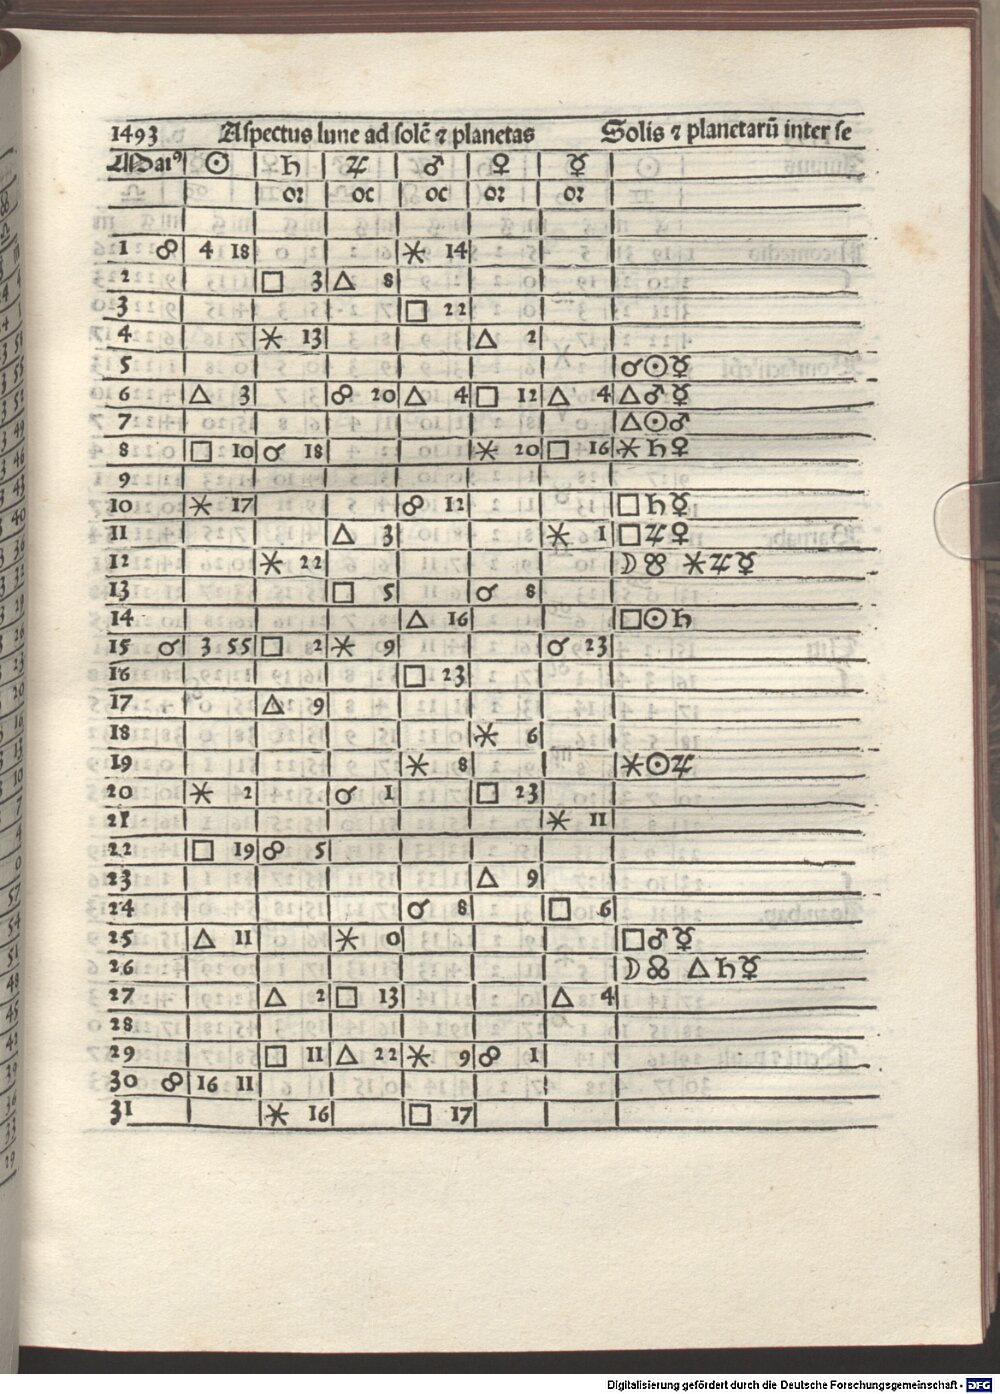 1493 Aspectus lune ad solē ⁊ planetas Solis ⁊ planetarū inter se
Maiꝰ ☉ ♄ ♃ ♂ ♀ ☿
oꝛ oc oc oꝛ oꝛ
1 ☍ 4 18 ⚹ 14
2 □ 3 △ 8
3 □ 22
4 ⚹ 13 △ 2
5 ☌☉☿
6 △ 3 ☍ 20 △ 4 □ 12 △ 4 △♂☿
7 △☉♂
8 □ 10 ☌ 18 ⚹ 20 □ 16 ⚹♄♀
9
10 ⚹ 17 ☍ 12 □♄☿
11 △ 3 ⚹ 1 □♃♀
12 ⚹ 22 ☽☊ ⚹♃☿
13 □ 5 ☌ 8
14 △ 16 □☉♄
15 ☌ 3 55 □ 2 ⚹ 9 ☌ 23
16 □ 23
17 △ 9
18 ⚹ 6
19 ⚹ 8 ⚹☉♃
20 ⚹ 2 ☌ 1 □ 23
21 ⚹ 11
22 □ 19 ☍ 5
23 △ 9
24 ☌ 8 □ 6
25 △ 11 ⚹ 0 □♂☿
26 ☽☊ △♄☿
27 △ 2 □ 13 △ 4
28
29 □ 11 △ 22 ⚹ 9 ☍ 1
30 ☍ 16 11
31 ⚹ 16 □ 17
Digitalisierung gefördert durch die Deutsche Forschungsgemeinschaft - DFG